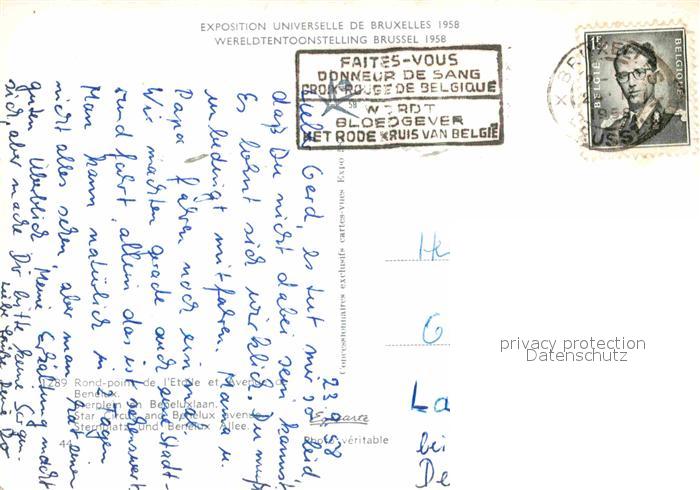 EXPOSITION UNIVERSELLE DE BRUXELLES 1958
WERELDTENTOONSTELLING BRUSSEL 1958
FAITES-VOUS
DONNEUR DE SANG
CROIX-ROUGE DE BELGIQUE
WERDT
BLOEDGEVER
HET RODE KRUIS VAN BELGIË
1F
BELGIE
BELGIQUE
23.9.58
Lieber Gerd, es tut mir so leid,
daß Du nicht dabei sein kannst.
Es lohnt sich wirklich. Du mußt
unbedingt mitfahren. Mama u.
Papa fahren noch einmal.
Wir machten grade auch eine Stadt-
rundfahrt, allein das ist sehenswert
Man kann natürlich in 2 Tagen
nicht alles sehen, aber man hat einen
guten Überblick. Meine Erkältung macht
sich, aber mache Dir bitte keine Sorgen.
Liebe Grüße Deine
1289 Rond-point de l'Etoile et Avenue du
Benelux.
Sterplein en Beneluxlaan.
Star Circus and Benelux avenue.
Sternplatz und Benelux Allee.
44
Photo véritable
Concessionnaires exclusifs cartes-vues Expo
H
G
La
bei
De
privacy protection
Datenschutz